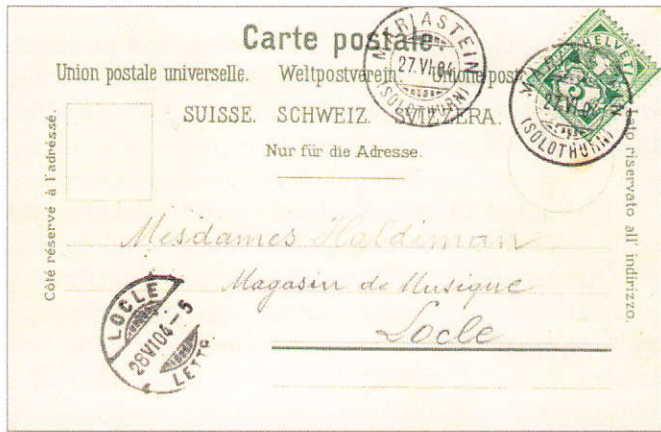 Carte postale
Union postale universelle. Weltpostverein. Unione post
SUISSE. SCHWEIZ. SVIZZERA.
Nur für die Adresse.
Côté réservé à l'adréssé.
Lato riservato all' indirizzo.
MARIASTEIN
27.VI.04
(SOLOTHURN)
HELVETIA
5
MARIASTEIN
27.VI.04
(SOLOTHURN)
Mesdames Haldiman
Magasin de Musique
Locle
LOCLE
28VI04-5
LETTR.